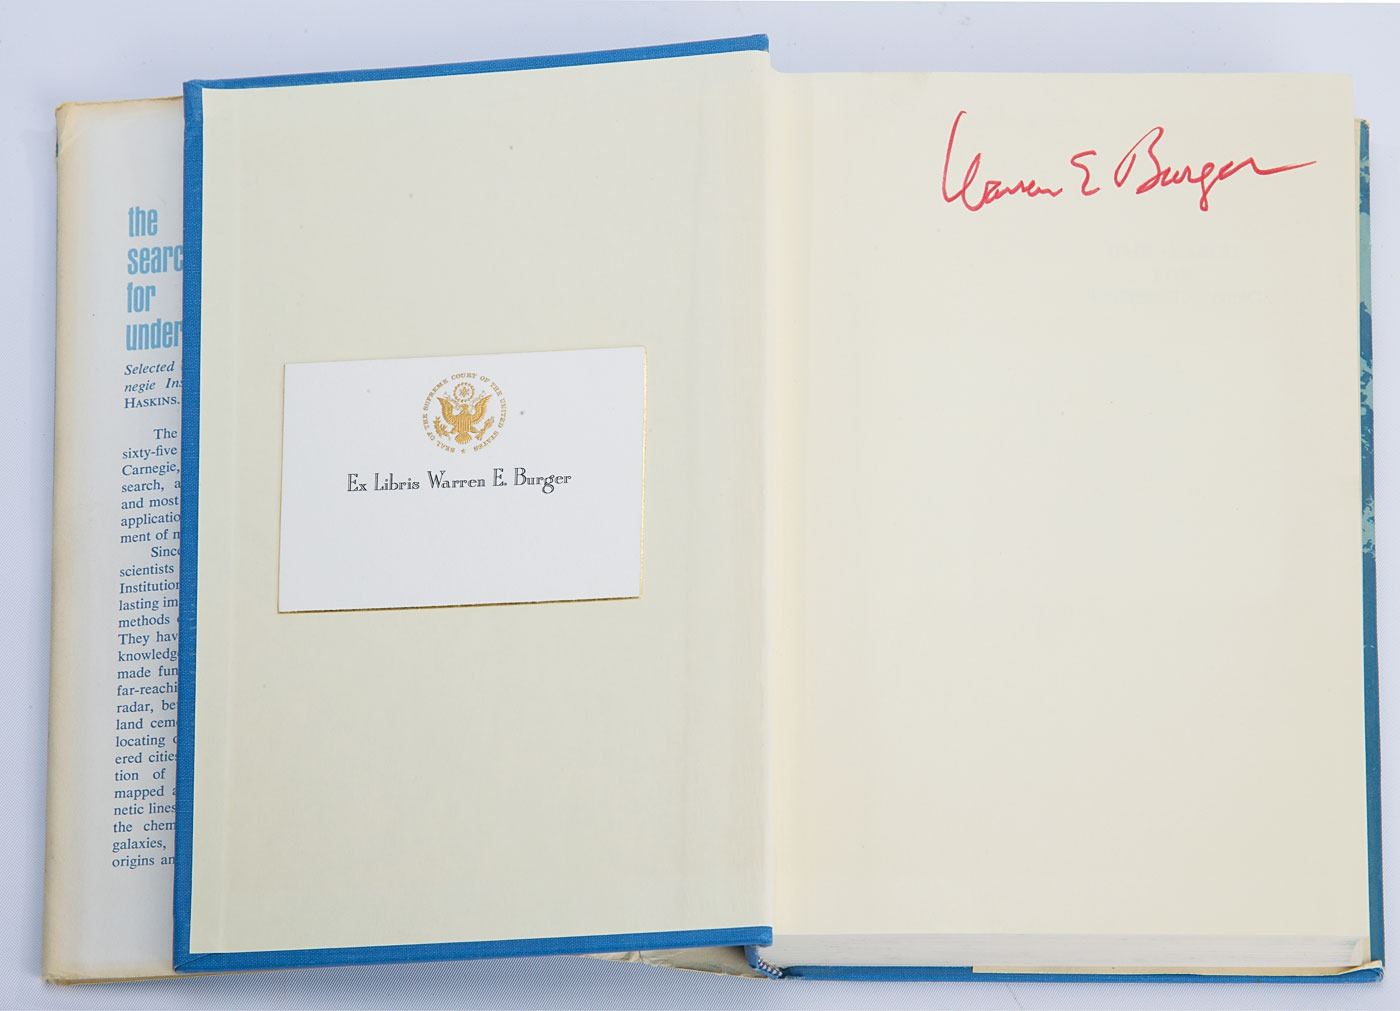 the
searc
for
under
Selected
negie Ins
HASKINS.
The
sixty-five
Carnegie,
search, a
and most
applicatio
ment of n
Since
scientists
Institution
lasting im
methods
They hav
knowledge
made fun
far-reachi
radar, be
land ceme
locating
ered cities
tion of
mapped a
netic lines
the chem
galaxies,
origins an
SEAL OF THE SUPREME COURT OF THE UNITED STATES
Ex Libris Warren E. Burger
Warren E Burger